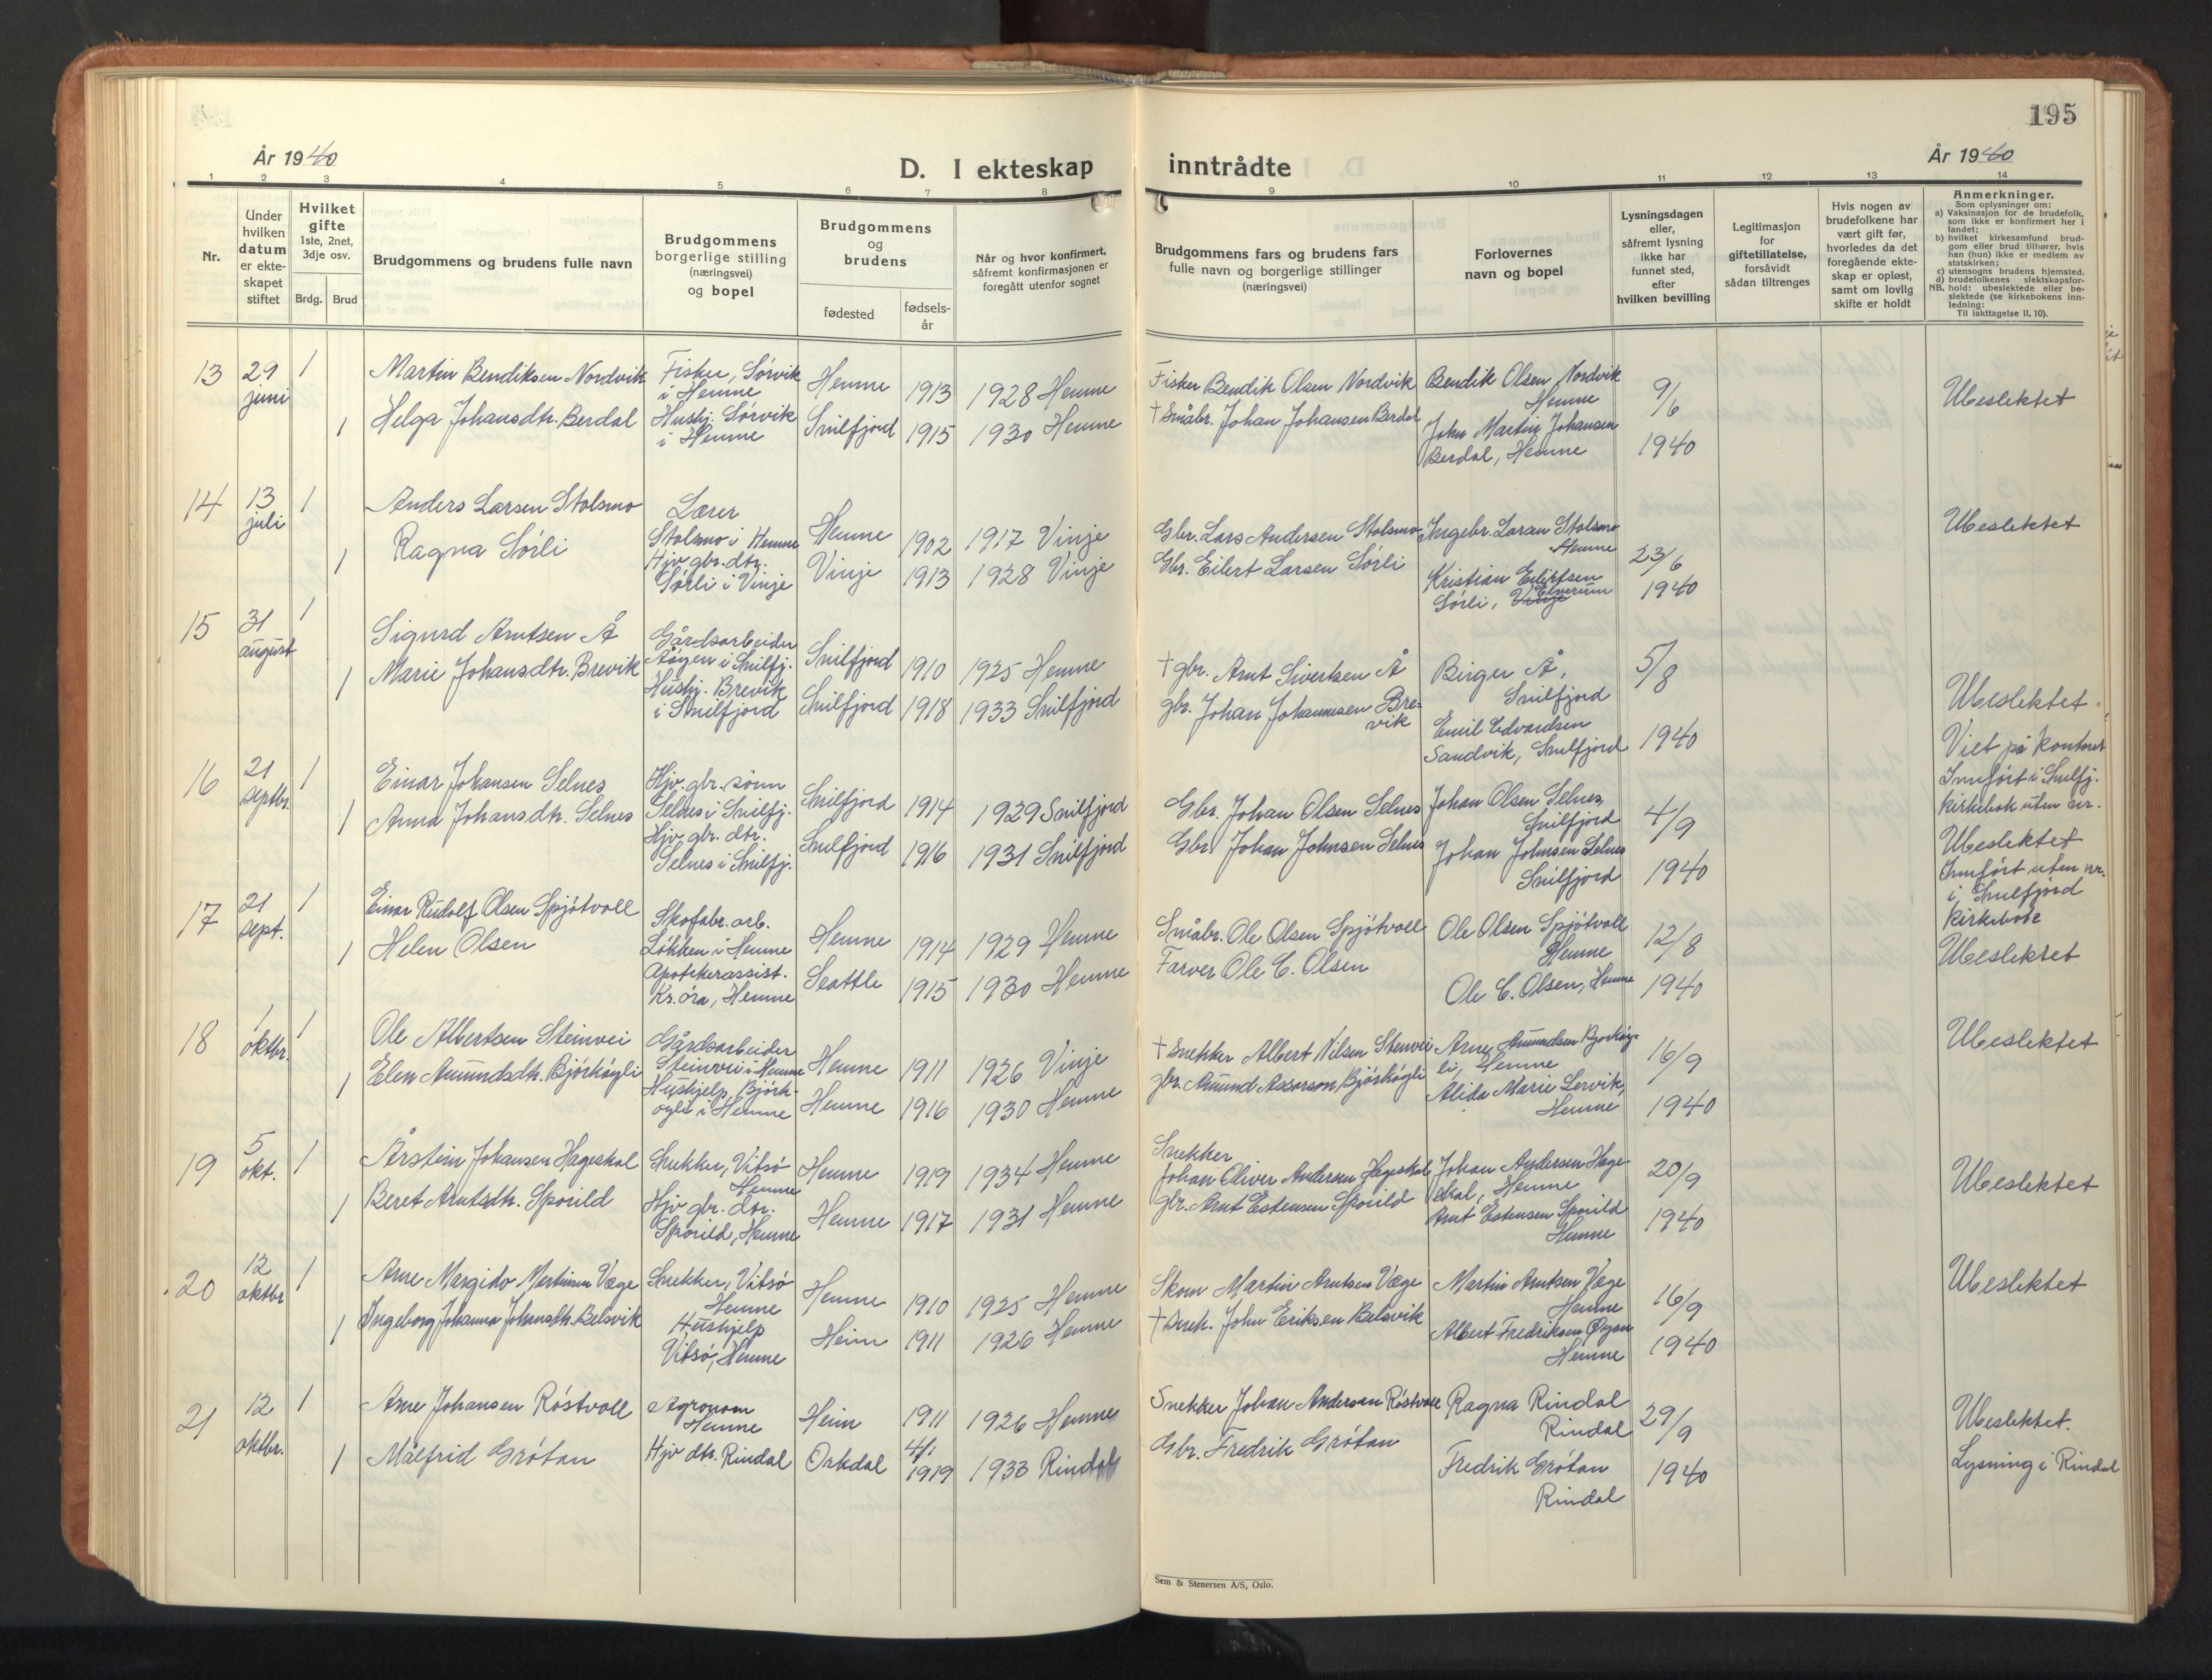 195
År 1940
D. I ekteskap inntrådte
År 1940
1 2 3 4 5 6 7 8 9 10 11 12 13 14
Nr.
Under hvilken datum er ekte- skapet stiftet
Hvilket gifte
1ste, 2net, 3dje osv.
Brdg. Brud
Brudgommens og brudens fulle navn
Brudgommens borgerlige stilling (næringsvei) og bopel
Brudgommens og brudens
fødested
fødsels- år
Når og hvor konfirmert, såfremt konfirmasjonen er foregått utenfor sognet
Brudgommens fars og brudens fars fulle navn og borgerlige stillinger (næringsvei)
Forlovernes navn og bopel
Lysningsdagen eller, såfremt lysning ikke har funnet sted, efter hvilken bevilling
Legitimasjon for giftetillatelse, forsåvidt sådan tiltrenges
Hvis nogen av brudefolkene har vært gift før, hvorledes da det foregående ekte- skap er opløst, samt om lovlig skifte er holdt
Anmerkninger.
Som oplysninger om:
a) Vaksinasjon for de brudefolk, som ikke er konfirmert her i landet;
b) hvilket kirkesamfund brud- gom eller brud tilhører, hvis han (hun) ikke er medlem av statskirken;
c) utensogns brudens hjemsted.
d) brudefolkenes slektskapsfor- hold: ubeslektede eller be- slektede (se kirkebokens inn- ledning:
NB.
Til iakttagelse II, 10).
13 29 juni 1 Martin Bendiksen Nordvik Fisker, Sørvik i Hemne Hemne 1913 1928 Hemne Fisker Bendik Olsen Nordvik Bendik Olsen Nordvik Hemne 9/6 Ubeslektet
1 Helga Johansdtr. Berdal Hushj. Sørvik i Hemne Snilfjord 1915 1930 Hemne † Småbr. Johan Johansen Berdal John Martin Johansen Berdal, Hemne 1940
14 13 juli 1 Anders Larsen Stolsmo Lærer Stolsmo i Hemne Hemne 1902 1917 Vinje Gbr. Lars Andersen Stolsmo Ingebr. Larsen Stolsmo Hemne 23/6 Ubeslektet
1 Ragna Sørli Hjv. gbr. dtr. Sørli i Vinje Vinje 1913 1928 Vinje Gbr. Eilert Larsen Sørli Kristian Eilertsen Sørli, Vinje Elverum 1940
15 31 august 1 Sigurd Arntsen Å Gårdsarbeider i Snilfj. Snilfjord 1910 1925 Hemne † gbr. Arnt Sivertsen Å Birger Å, Snilfjord 5/8 Ubeslektet
1 Marie Johansdtr. Brevik Hushj. Brevik i Snilfjord Snilfjord 1918 1933 Snilfjord gbr. Johan Johannesen Bre- vik Emil Edvardsen Sandvik, Snilfjord 1940 Viet på kontoret Innført i Snilfj. kirkebok uten nr.
16 21 septbr. 1 Einar Johansen Selnes Hjv. gbr. sønn Selnes i Snilfj. Snilfjord 1914 1929 Snilfjord Gbr. Johan Olsen Selnes Johan Olsen Selnes, Snilfjord 4/9 Ubeslektet
1 Anna Johansdtr. Selnes Hjv. gbr. dtr. Selnes i Snilfj. Snilfjord 1916 1931 Snilfjord Gbr. Johan Johnsen Selnes Johan Johnsen Selnes Snilfjord 1940 Innført uten nr. i Snilfjord kirkebok
17 21 sept. 1 Einar Rudolf Olsen Spjøtvoll Skofabr. arb. Løkken i Hemne Hemne 1914 1929 Hemne Småbr. Ole Olsen Spjøtvoll Ole Olsen Spjøtvoll Hemne 12/8 Ubeslektet
1 Helen Olsen Apotekerassist. Kr.øra, Hemne Seattle 1915 1930 Hemne Farver Ole C. Olsen Ole C. Olsen, Hemne 1940
18 1 oktbr. 1 Ole Albertsen Steinvei Gårdsarbeider Steinvei i Hemne Hemne 1911 1926 Vinje † Snekker Albert Nilsen Stenvei Arne Amundsen Bjørkøy- li, Hemne 16/9 Ubeslektet
1 Elen Amundsdtr. Bjørkøyli Hushjelp, Bjørk- øyli i Hemne Hemne 1916 1930 Hemne gbr. Amund Assarson Bjørkøyli Alida Marie Lervik, Hemne 1940
19 5 okt. 1 Årstein Johansen Hageskal Snekker, Vitsø Hemne Hemne 1919 1934 Hemne Snekker Johan Oliver Andersen Hageskal Johan Andersen Hage- skal, Hemne 20/9 Ubeslektet
1 Beret Arntsdtr. Sporild Hjv. gbr. dtr. Sporild, Hemne Hemne 1917 1931 Hemne gbr. Arnt Estensen Sporild Arnt Estensen Sporild Hemne 1940
20 12 oktbr 1 Arne Margido Martinsen Væge Snekker, Vitsø Hemne Hemne 1910 1925 Hemne Skom. Martin Arntsen Væge Martin Arntsen Væge Hemne 16/9 Ubeslektet
1 Ingeborg Johanna Johansdtr. Belsvik Hushjelp Vitsø, Hemne Heim 1911 1926 Hemne † Snek. John Eriksen Belsvik Albert Fredriksen Hemne 1940
21 12 oktbr. 1 Arne Johansen Røstvoll Agronom Hemne Heim 1911 1926 Hemne Snekker Johan Anderson Røstvoll Ragna Rindal Rindal 29/9 Ubeslektet.
1 Målfrid Grøtan Hjv dtr. Rindal Orkdal 4/1 1919 1933 Rindal Gbr. Fredrik Grøtan Fredrik Grøtan Rindal 1940 Lysning i Rindal
Sem & Stenersen A/S, Oslo.